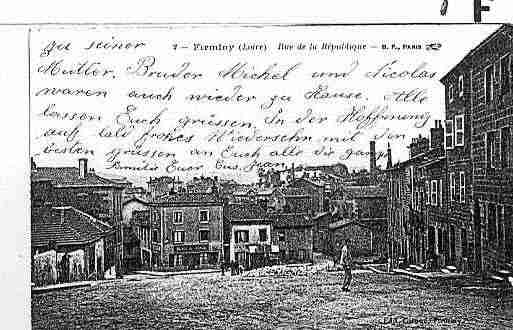 zu seiner
2 - Firminy (Loire) Rue de la République - B. F., PARIS
Mutter. Bruder Michel und Nicolas
waren auch wieder zu Hause. Alle
lassen Euch grüssen. In der Hoffnung
auf bald frohes Wiedersehn mit den
besten grüssen an Euch alle die ganze
Familie